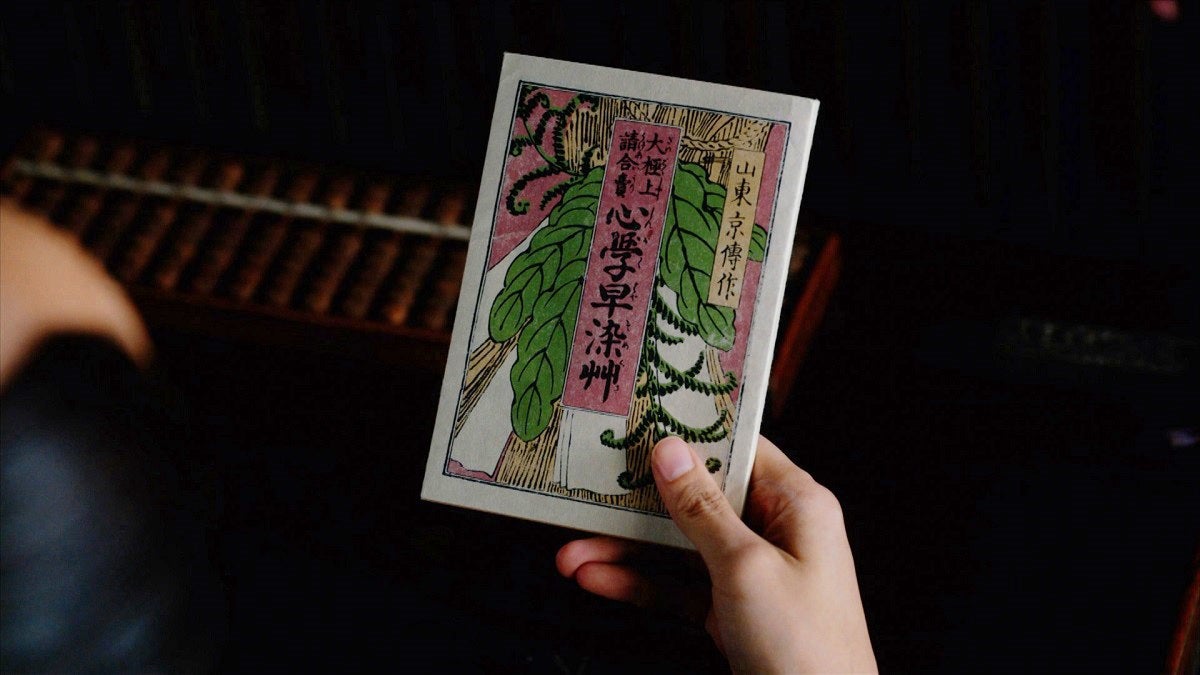 山東京傳作
大極上
請合賣
心學早染艸